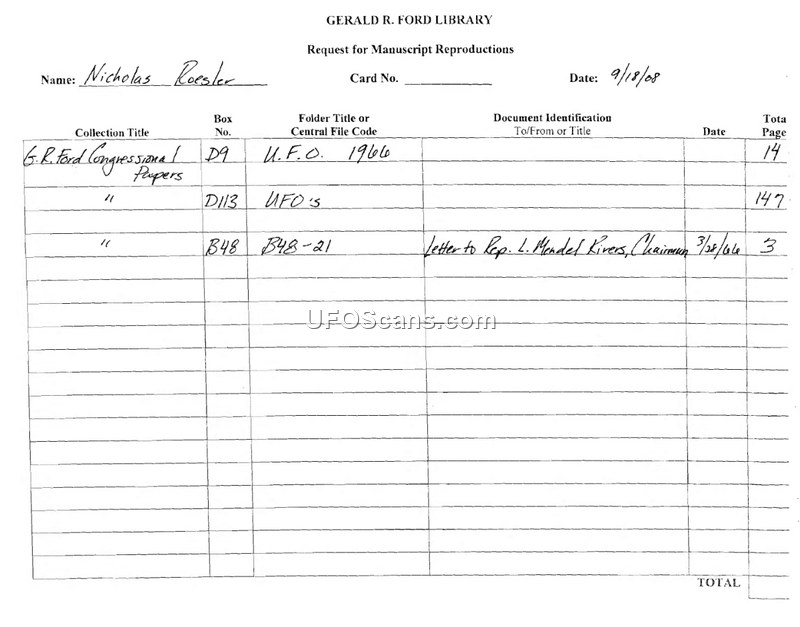 GERALD R. FORD LIBRARY
Request for Manuscript Reproductions
Name: Nicholas Roesler Card No. Date: 9/18/08
Collection Title Box No. Folder Title or Central File Code Document Identification To/From or Title Date Tota Page
G.R. Ford Congressional Papers D9 U.F.O. 1966 14
" D113 UFO's 147
" B48 B48-21 Letter to Rep. L. Mendel Rivers, Chairman 3/28/66 3
UFOScans.com
TOTAL